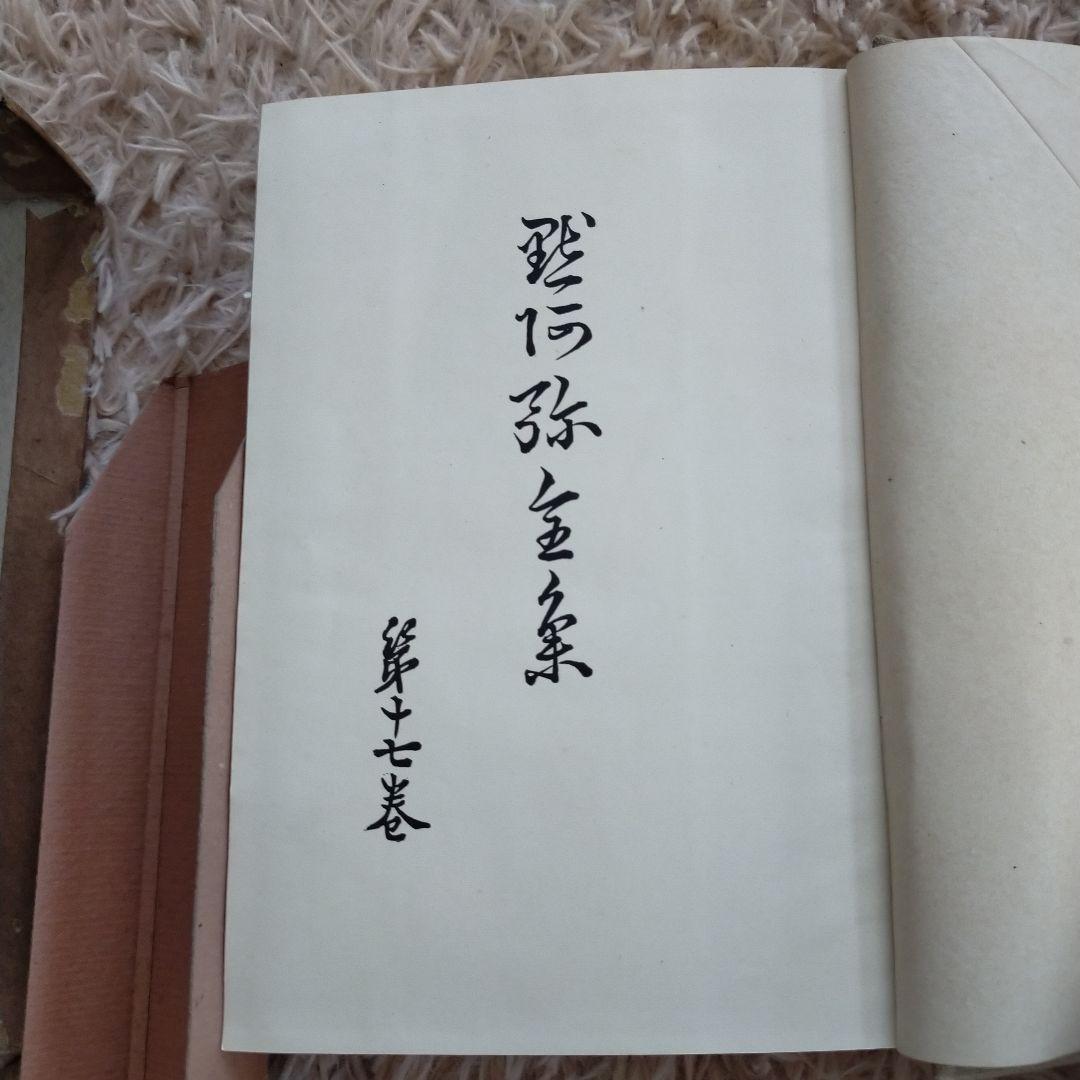 黙阿弥全集
第十七巻